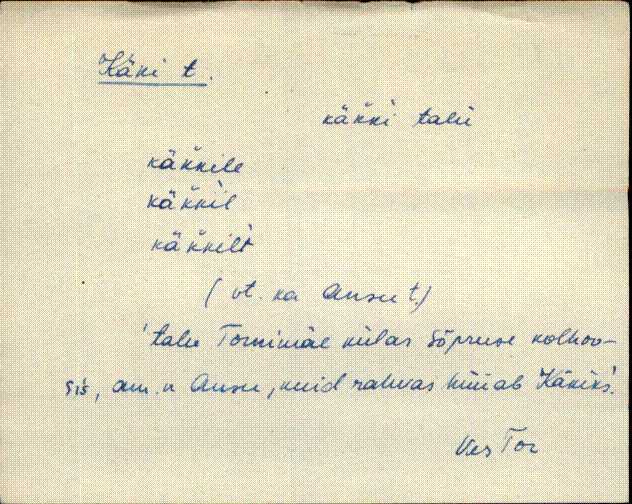 Käki t.
käk̆ki talu
käk̆kile
käk̆kil
käk̆kilt
(vt. ka Ansu t.)
'talu Tornimäe külas Sõpruse kolhoo-
sis, am. n Ansu, kuid rahvas hüüab Käkiks'.
Ves Tor